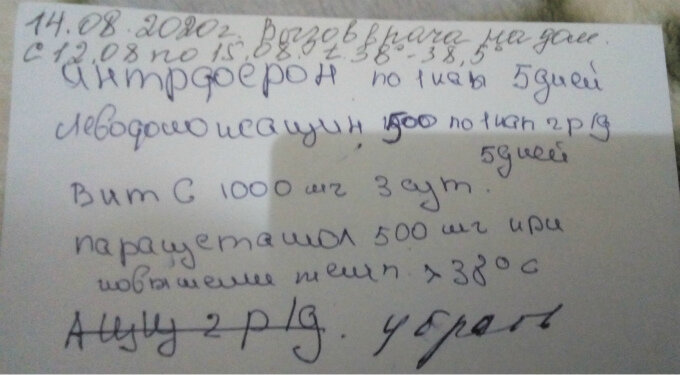 14.08.2020г. Вызов врача на дом.
С 12.08 по 15.08. t 38°-38,5°
Интрфоерон по 1 кап 5 дней
Леводолоисацин 500 по 1 кап 2 р/д
5 дней
Вит С 1000 мг 3 сут.
парацетамол 500 мг при
повышении темп > 38°С
АЦЦ 2 р/д. убрать